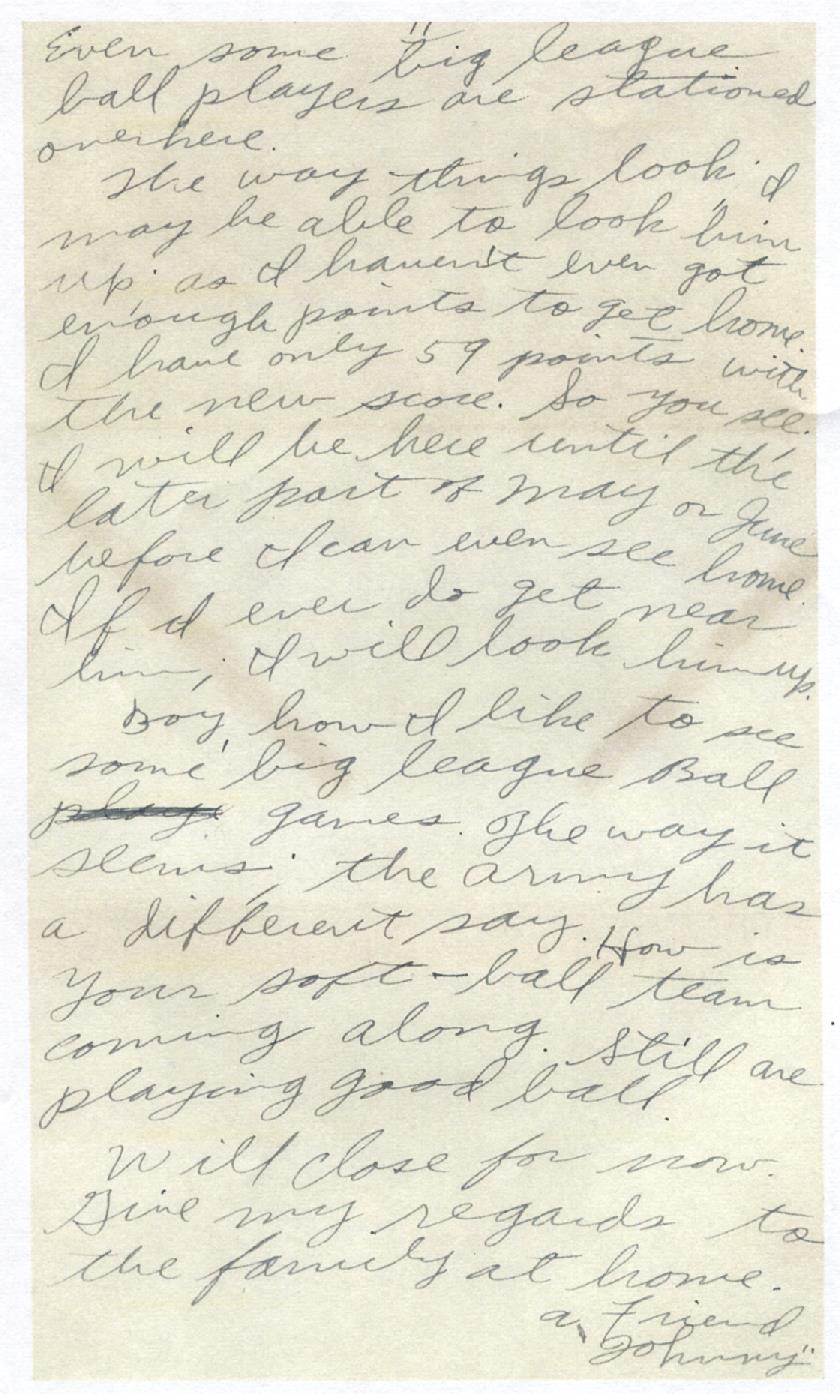 Even some "big league
ball players are stationed
overhere.
The way things look I
may be able to look him
up, as I haven't even got
enough points to get home.
I have only 59 points with
the new score. So you see.
I will be here until the
later part of May or June
before I can even see home.
If I ever do get near
him, I will look him up.
Boy, how I like to see
some big league Ball
plays games. The way it
seems, the army has
a different say. How is
your soft-ball team
coming along. Still are
playing good ball.
Will close for now.
Give my regards to
the family at home.
a, Friend
Johnny"